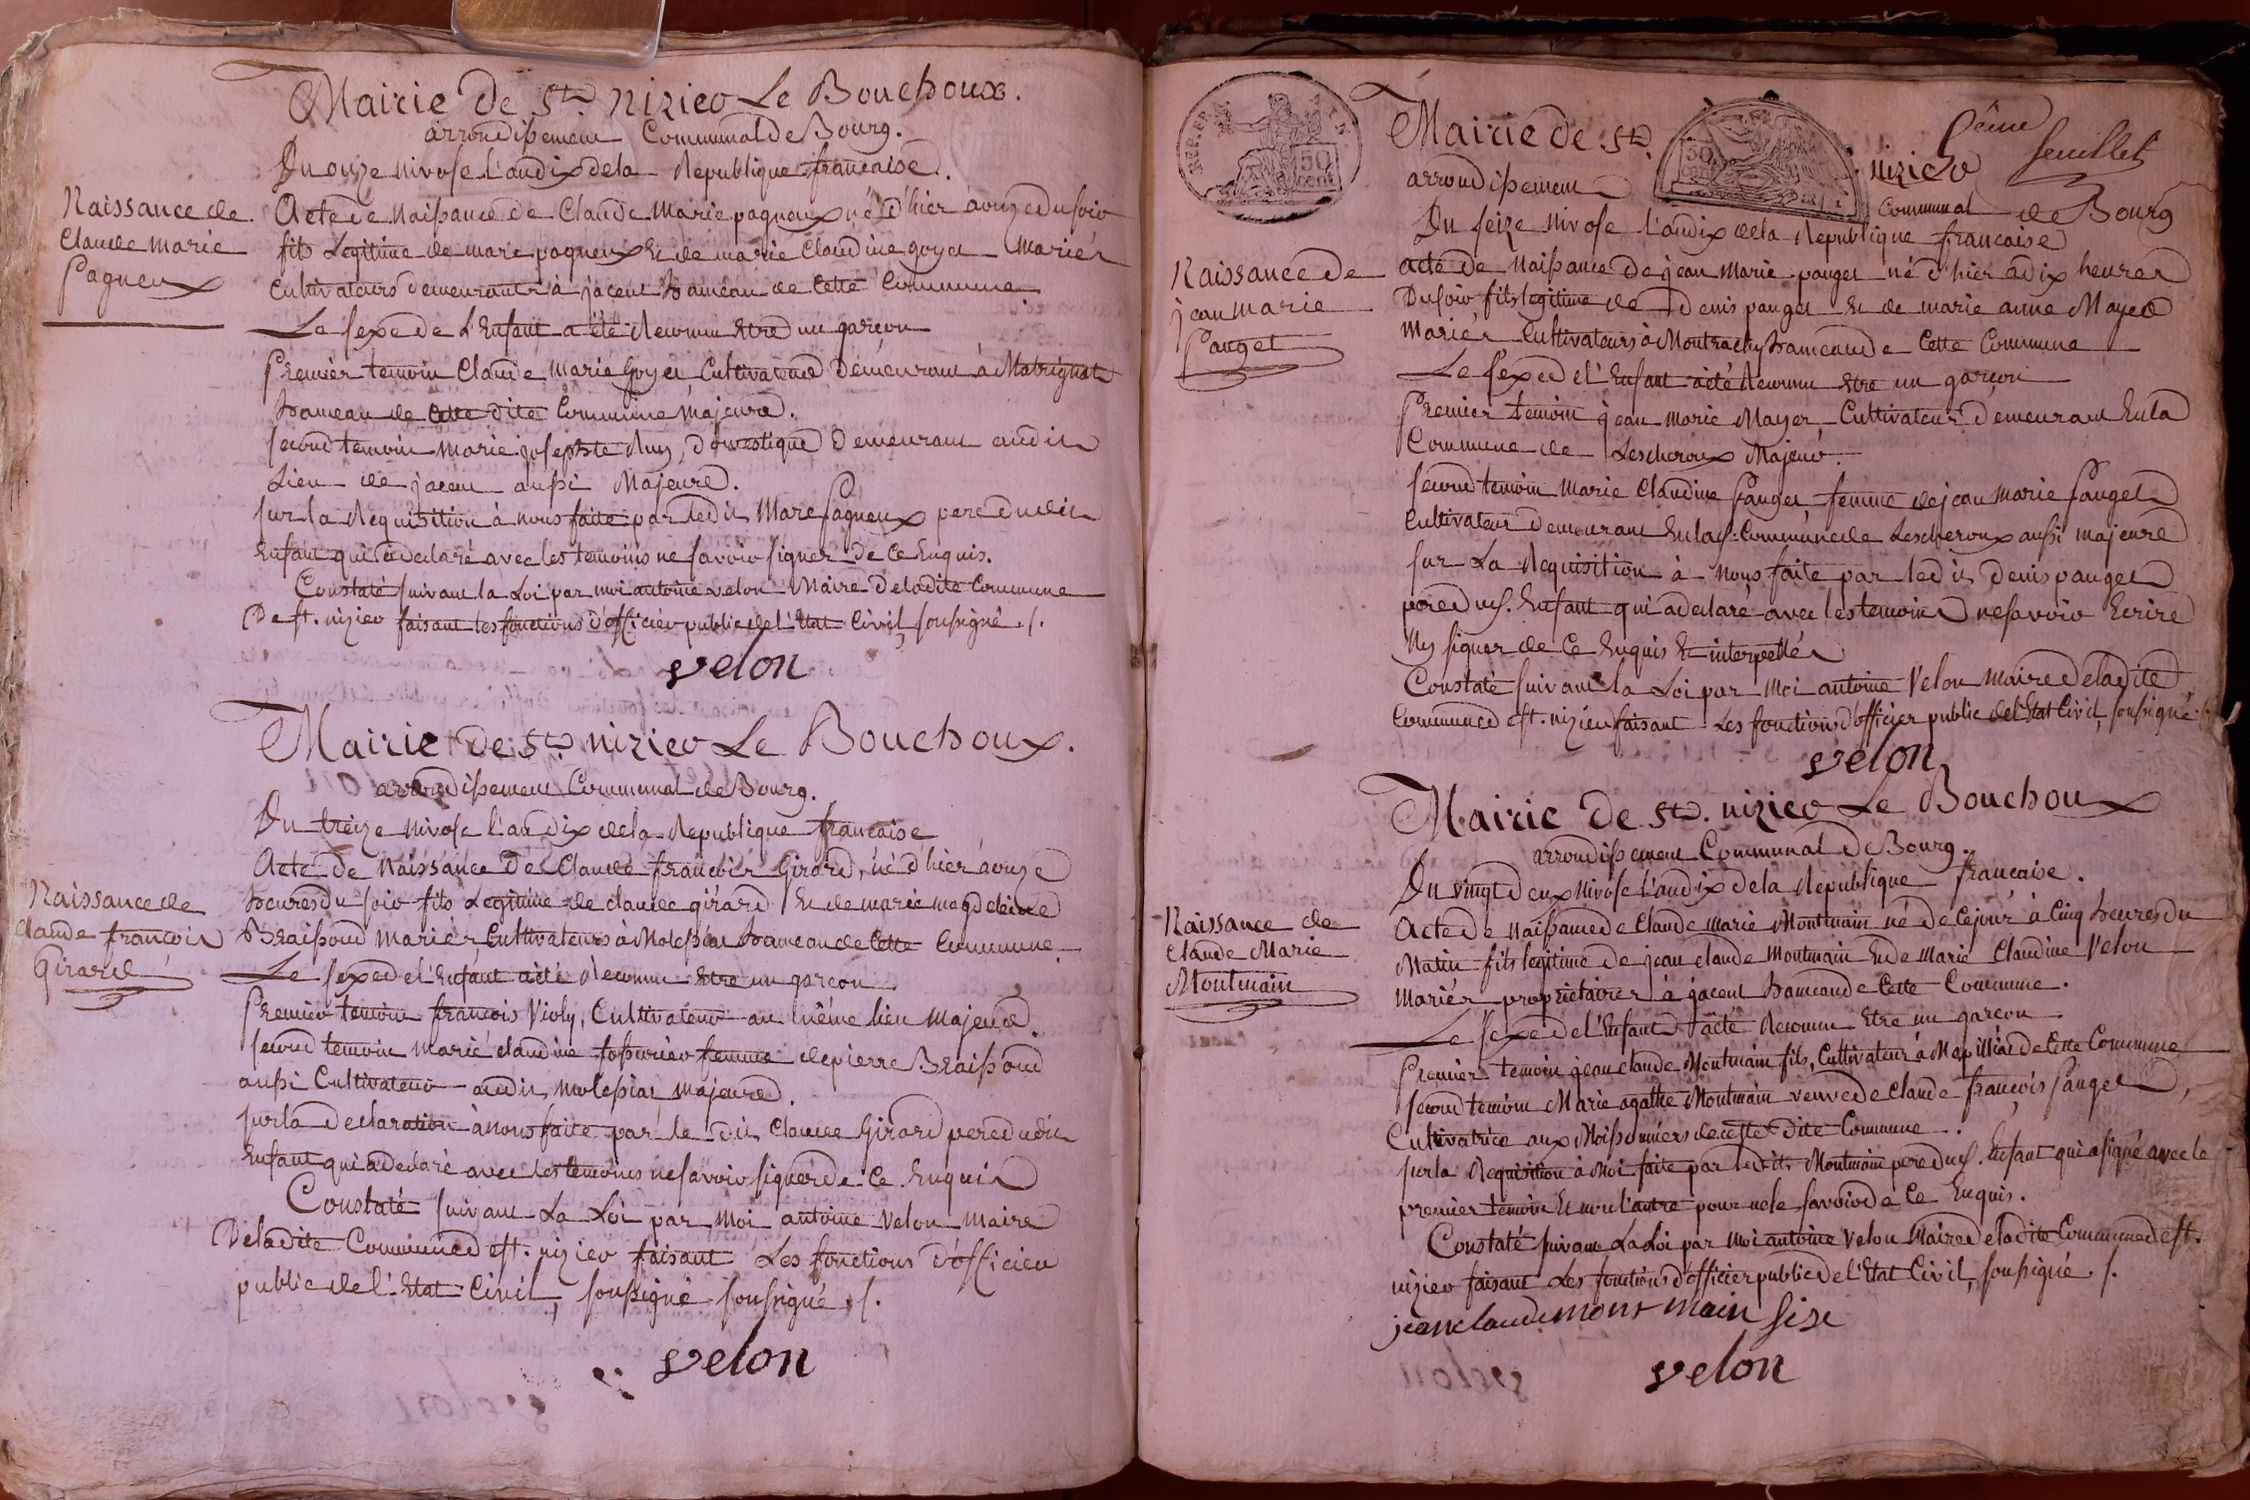 Mairie de St. nizier Le Bouchoux.
arrondissement Communal de Bourg.
Du onze nivose l'an dix de la Republique francaise.
Naissance de
Claude Marie
Pagneux
Acte de Naissance de Claude Marie pagneux né d'hier à onze du soir
fils Legitime de marc pagneux Et de marie Claudine goyet Mariés
Cultivateurs demeurants à jacent hameau de Cette Commune.
Le sexe de L'Enfant a été Reconnu Etre un garçon
Premier temoin Claude Marie Goyet Cultivateur Demeurant à Matrignat
hameau de Cette dite Commune Majeure.
second temoin Marie josephte Ruy, domestique Demeurant audit
Lieu de jacent aussi Majeure.
sur la Requisition à nous faite par ledit Marc Pagneux pere dudit
Enfant qui a declaré avec les temoins ne savoir signer de Ce Enquis.
Constaté suivant la Loi par moi antoine velon Maire de ladite Commune
De st. nizier faisant les fonctions d'officier public de l'Etat Civil, soussigné ./.
velon
Mairie de St. nizier Le Bouchoux.
arrondissement Communal de Bourg.
Du treize nivose l'an dix de la Republique francaise
Naissance de
Claude françois
Girard
Acte de Naissance de Claude françois Girard, né d'hier à onze
heures du soir fils Legitime de claude girard Et de marie magdeleine
Braissoud Mariés Cultivateurs à Molessiat hameau de Cette Commune.
Le sexe de l'Enfant a été Reconnu Etre un garçon
Premier temoin françois Violy, Cultivateur au même lieu Majeur.
second temoin Marie claudine femme de pierre Braissoud
aussi Cultivateur audit Molessiat Majeure.
sur la Declaration à nous faite par le dit Claude Girard pere dudit
Enfant qui a declaré avec les temoins ne savoir signer de Ce Enquis
Constaté suivant La Loi par Moi antoine Velon Maire
De ladite Commune de st. nizier faisant Les fonctions d'officier
public de l'Etat Civil, soussigné soussigné ./.
velon
REP. FR.
50
cent
Mairie de St. nizier
50
feuillet
arrondissement Communal de Bourg
Du seize Nivose l'an dix de la Republique francaise
Naissance de
jean marie
Pauget
acte de Naissance de jean Marie pauget né d'hier à dix heures
Du soir fils legitime de Denis pauget Et de marie anne Mayer
Mariés Cultivateurs à Montrachy hameau de Cette Commune
Le sexe de l'Enfant a été Reconnu Etre un garçon
Premier temoin jean marie Mayer, Cultivateur demeurant En la
Commune de Lescheroux Majeur.
second temoin Marie Claudine Pauget femme de jean marie Pauget
Cultivateur demeurant En lad. Commune de Lescheroux aussi majeure
sur La Requisition à Nous faite par ledit denis pauget
pere dud. Enfant qui a declaré avec les temoins ne savoir Ecrire
Ny signer de Ce Enquis Et interpellés
Constaté suivant la Loi par Moi antoine Velon Maire de ladite
Commune de st. nizier faisant Les fonctions d'officier public de l'Etat Civil, soussigné ./.
velon
Mairie de St. nizier Le Bouchoux
arrondissement Communal de Bourg.
Du vingt deux nivose l'an dix de la Republique francaise.
Naissance de
Claude Marie
Montmain
Acte de naissance de Claude Marie Montmain né de Ce jour à Cinq heures du
Matin fils legitime de jean claude Montmain Et de Marie Claudine Velon
Mariés proprietaires à jacent hameau de Cette Commune.
Le sexe de l'Enfant a été Reconnu Etre un garçon
Premier temoin jean claude Montmain fils, Cultivateur à Mapilliat de Cette Commune
second temoin Marie agathe Montmain veuve de Claude françois Pauget,
Cultivatrice aux Moissonniers de cette dite Commune.
sur la Requisition à Moi faite par ledit Montmain pere dud. Enfant qui a signé avec le
premier temoin Et non l'autre pour ne le savoir de Ce Enquis.
Constaté suivant La Loi par Moi antoine Velon Maire de ladite Commune de st.
nizier faisant Les fonctions d'officier public de l'Etat Civil, soussigné ./.
jean claude mont main
velon